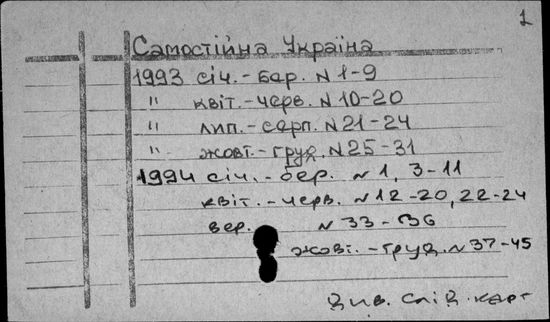 1
Самостійна Україна
1993 січ.-бар. N 1-9
" квіт.-черв. N 10-20
" лип.-серп. N 21-24
" жовт.-груд. N 25-31
1994 січ.-бер. N 1, 3-11
квіт.-черв. N 12-20, 22-24
вер. N 33-36
жовт.-груд. N 37-45
Див. слід. карт